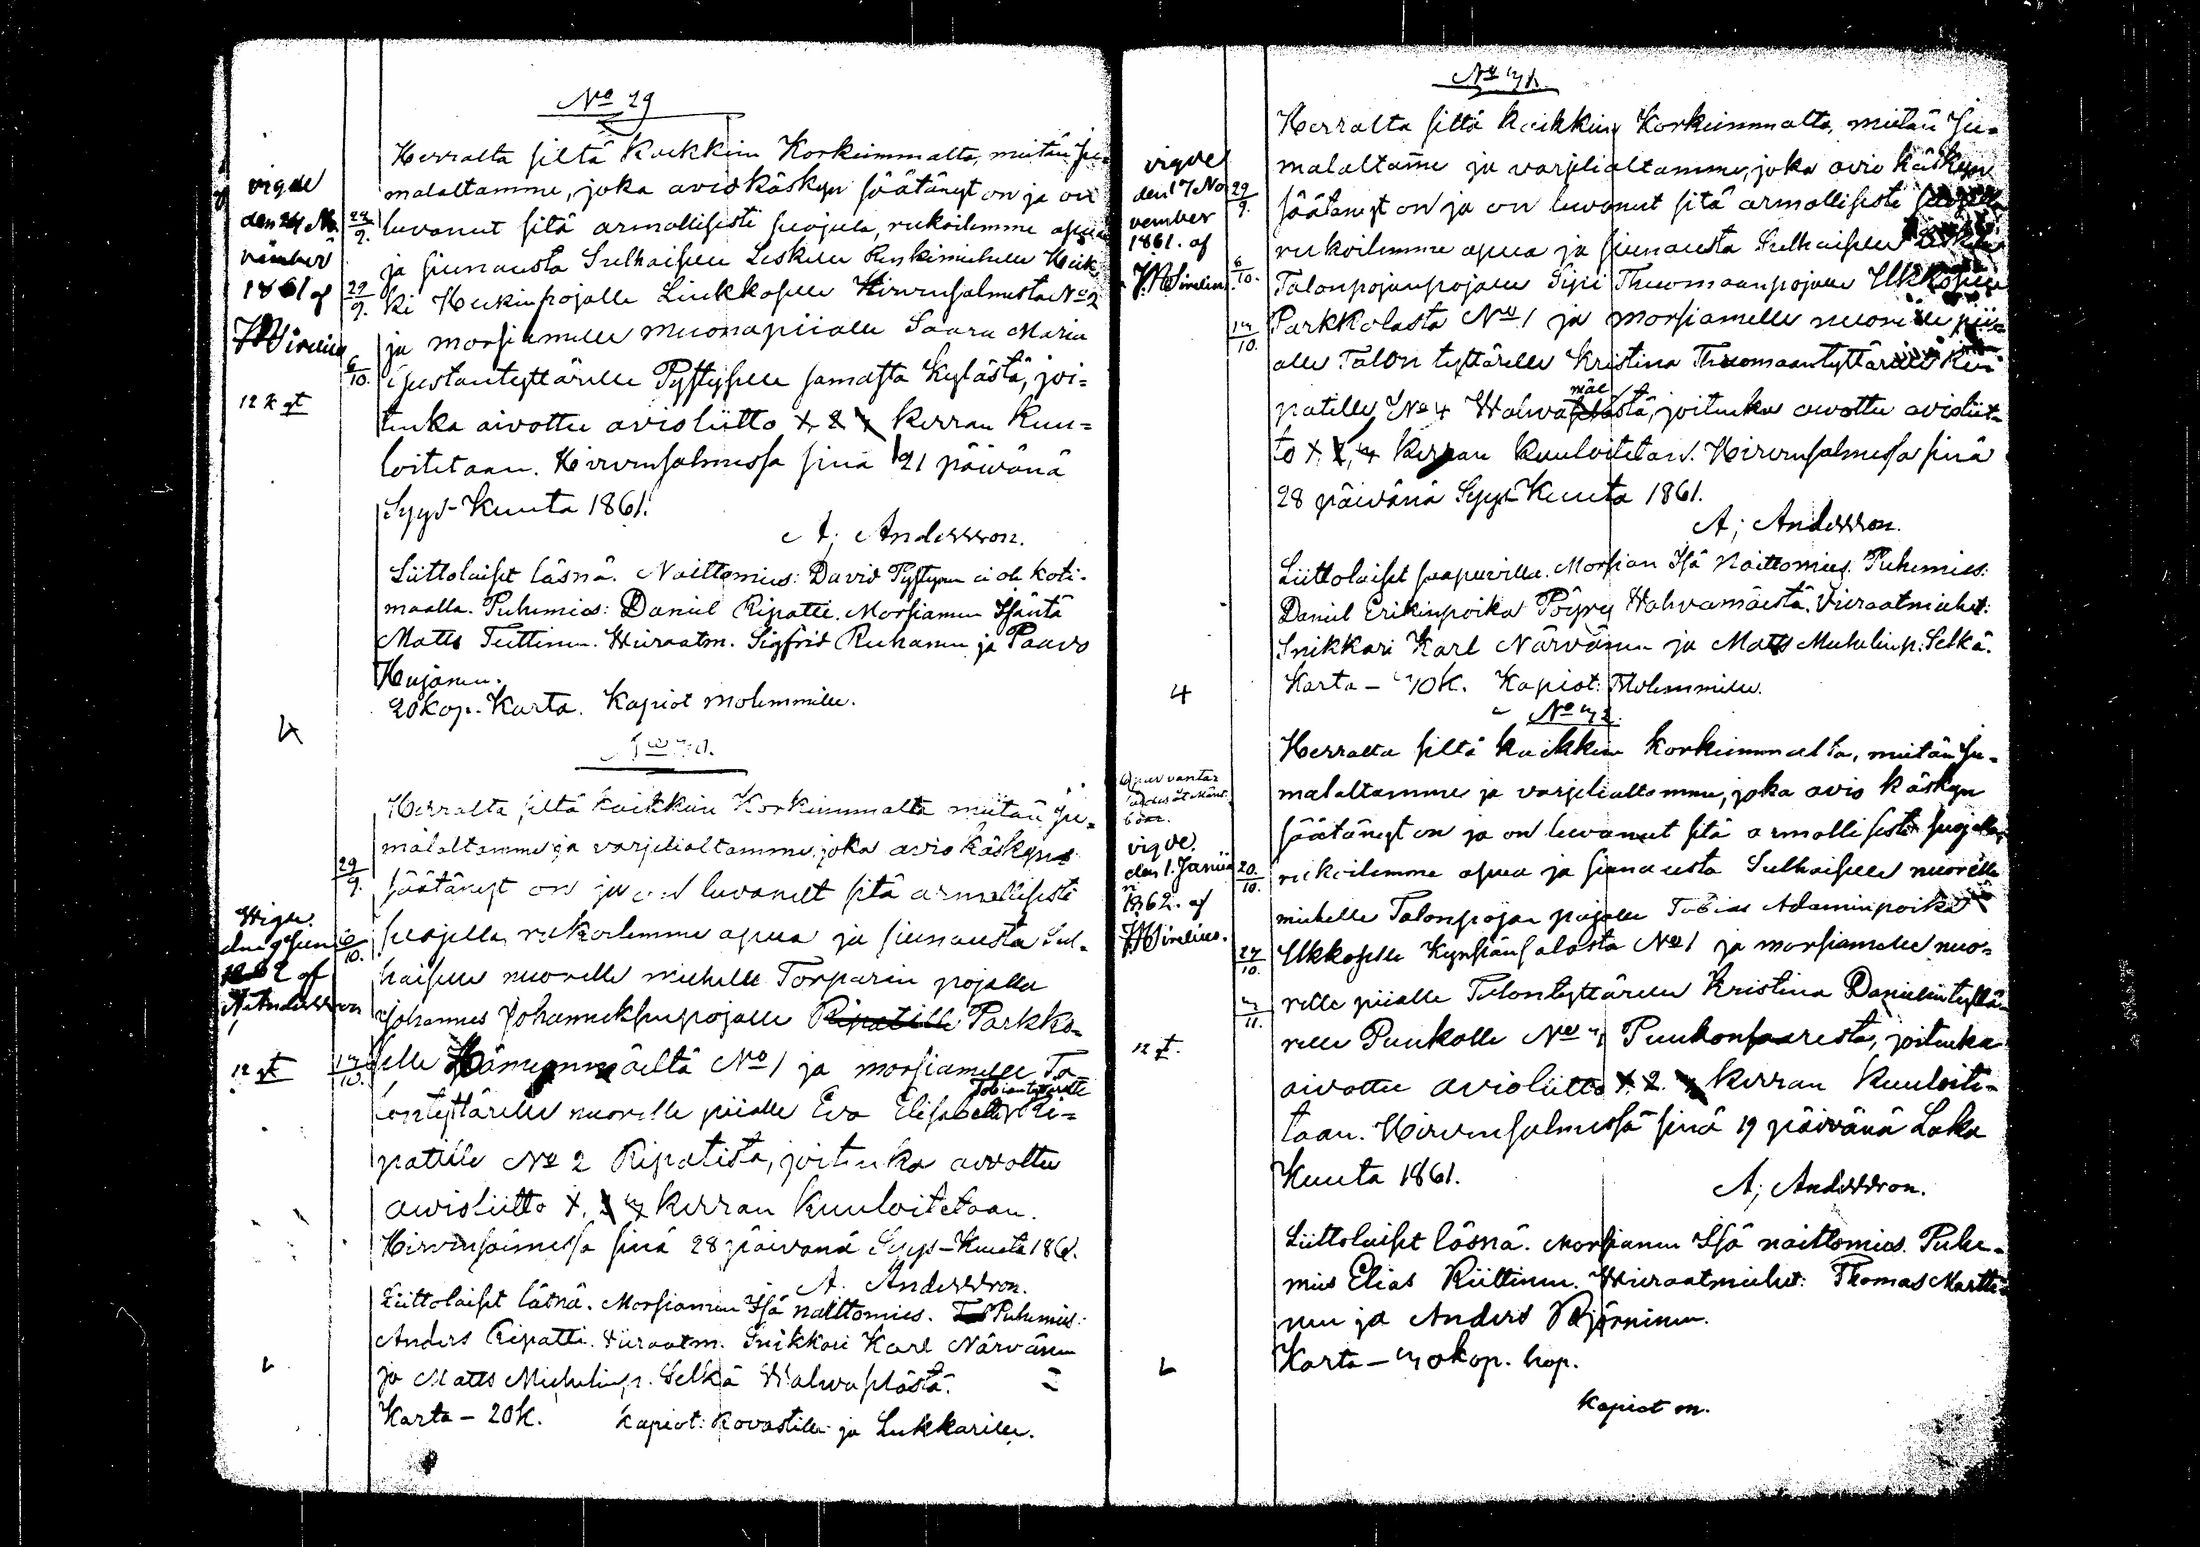 No 29
Herralta siltä Kaikkein Korkeimmalta, meitän Ju-
malaltamme, joka aviokäskyn säätänyt on ja on
luvannut sitä armollisesti suojella, rukoilemme apua
ja siunausta Sulhaiselle Leskelle Renkimiehelle Heik
ki Heikinpojalle Liukkoselle Hirvensalmesta No 2
ja morsiamelle muonapiialle Saara Maria
Gustantyttärelle Pystyselle samasta Kylästä, joi-
tenka aivottu avioliitto 1. 2 3 kerran Kuu-
loitetaan. Hirvensalmessa sinä 21 päivänä
Syys-Kuuta 1861.
A; Andersson.
Liittolaiset läsnä. Naittomies: David Pystynen ei ole koti-
maalla. Puhemies: Daniel Ripatti. Morsiamen Isäntä
Matts Teittinen. Wieraatm. Sigfrid Ruhanen ja Paavo
Kujanen.
20 kop. Karta. Kapiot molemmille.
vigde
den 24 No
vember
1861 af
29/9.
29/9.
6/10.
12 k qt
4
No 30.
Herralta siltä kaikkein Korkeimmalta meitän Ju-
malaltamme ja varjelialtamme, joka avio käskyn
säätänyt on ja on luvannut sitä armollisesti
suojella, rukoilemme apua ja siunausta Sul-
haiselle nuorelle miehelle Torparin pojalle
Johannes Johanneksenpojalle Ripatille Parkko-
selle Hämeenmäeltä No 1 ja morsiamelle Ta
Tobiantyttärelle
lontyttärelle nuorelle piialle Eva Elisabeth Ri-
patille No 2 Ripatista, joitenka aivottu
avioliitto 1. 2 3 kerran Kuuloitetaan.
Hirvensalmessa sinä 28 päivänä Syys-Kuuta 1861.
A. Andersson.
Liittolaiset läsnä. Morsiamen Isä naittomies. Puhemies:
Anders Ripatti. Vieraatm. Snikkari Karl Närvänen
ja Matts Michelinp. Selkä
Karta - 20 k. Kapiot: Rovastille ja Lukkarille.
29/9.
6/10.
13/10.
1862 af
A Andersson
12 qt
No 31.
Herralta siltä kaikkein Korkeimmalta, meitän Ju-
malaltamme ja varjelialtamme, joka avio käskyn
säätänyt on ja on luvannut sitä armollisesti suojella
rukoilemme apua ja siunausta Sulhaiselle Leskelle
Talonpojanpojalle Sipi Thuomaanpojalle Ukkoselle
Parkkolasta No 1 ja morsiamelle nuorelle pii-
alle Talon tyttärelle Kristina Thuomaantyttärelle Ri-
mäe
patille No 4 Wahvaselästä, joitenka aivottu avioliit-
to 1. 2, 3 kerran Kuuloitetaan. Hirvensalmessa sinä
28 päivänä Syys-Kuuta 1861.
A; Andersson.
Liittolaiset saapuvilla. Morsian Isä Naittomies. Puhemies:
Daniel Erikinpoika Pöyry Wahvamäestä. Vieraatmiehet:
Snikkari Karl Närvänen ja Matts Michelinp. Selkä.
Karta - 30 k. Kapiot: Molemmille.
vigde
den 17 No
vember
1861. af
29/9.
6/10.
13/10.
4
No 32.
Herralta siltä kaikkein korkeimmalta, meitän Ju-
malaltamme ja varjelialtamme, joka avio käskyn
säätänyt on ja on luvannut sitä armollisesti suojella,
rukoilemme apua ja siunausta Sulhaiselle nuorelle
miehelle Talonpojan pojalle Tobias Adaminpoika
Ukkoselle Kynsiänsalosta No 1 ja morsiamelle nuo-
relle piialle Talontyttärelle Kristina Danielintyttä-
relle Puukolle No 3 Puukonsaaresta, joitenka
aivottu avioliitto 1. 2. 3 kerran Kuuloite-
taan. Hirvensalmessa sinä 19 päivänä Loka
Kuuta 1861.
A; Andersson.
Liittolaiset läsnä. Morsiamen Isä naittomies. Puhe-
mies Elias Riittinen. Wieraatmiehet: Thomas Martti-
nen ja Anders Björninen.
Karta - 30 kop. hop.
Kapiot m.
vigde.
den 1. Januii
1862. af
20/10.
27/10.
3/11.
12 qt.